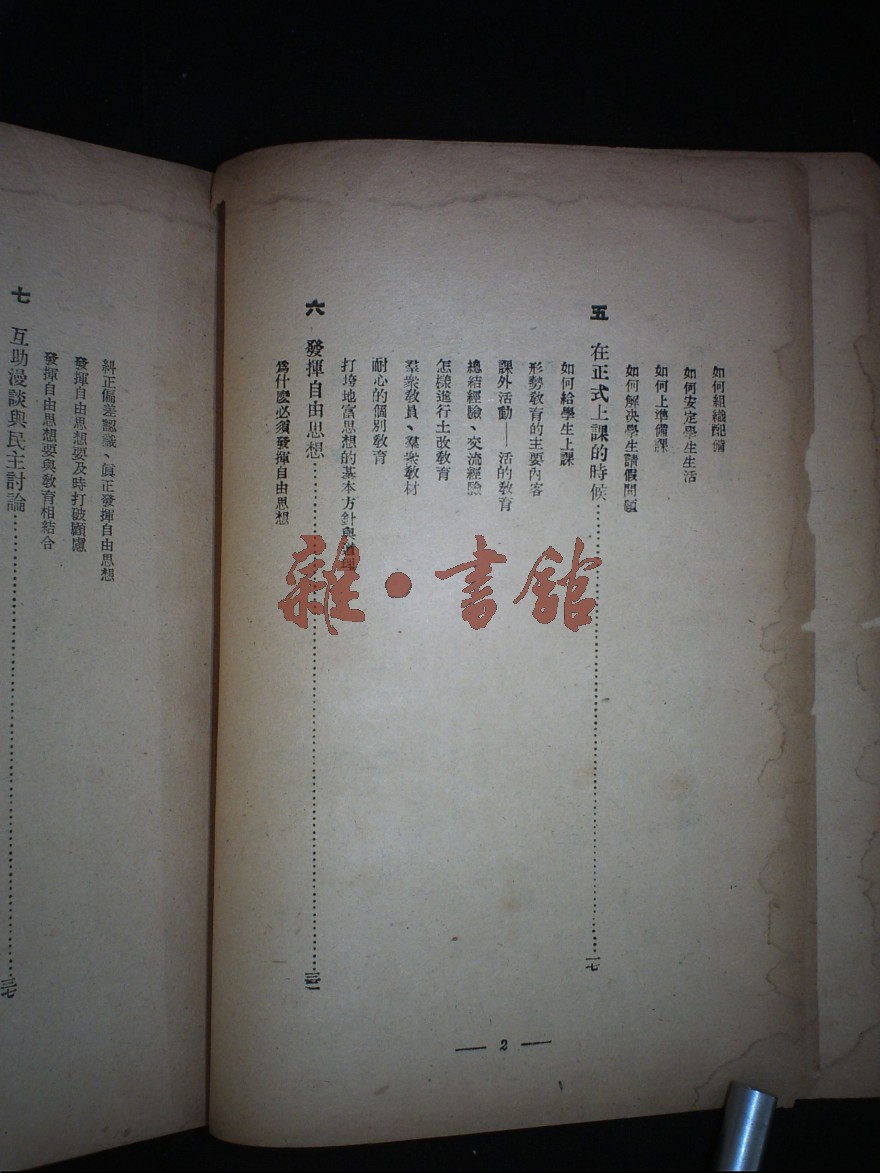 如何組織配備
如何安定學生生活
如何上準備課
如何解決學生請假問題
五 在正式上課的時候……一七
如何給學生上課
形勢教育的主要內容
課外活動——活的教育
總結經驗、交流經驗
怎樣進行土改教育
羣衆教員、羣衆教材
耐心的個別教育
打垮地富思想的基本方針與道理
六 發揮自由思想……三二
爲什麼必須發揮自由思想
— 2 —
糾正偏差認識、眞正發揮自由思想
發揮自由思想要及時打破顧慮
發揮自由思想要與敎育相結合
七 互助漫談與民主討論……三七
雜·書館